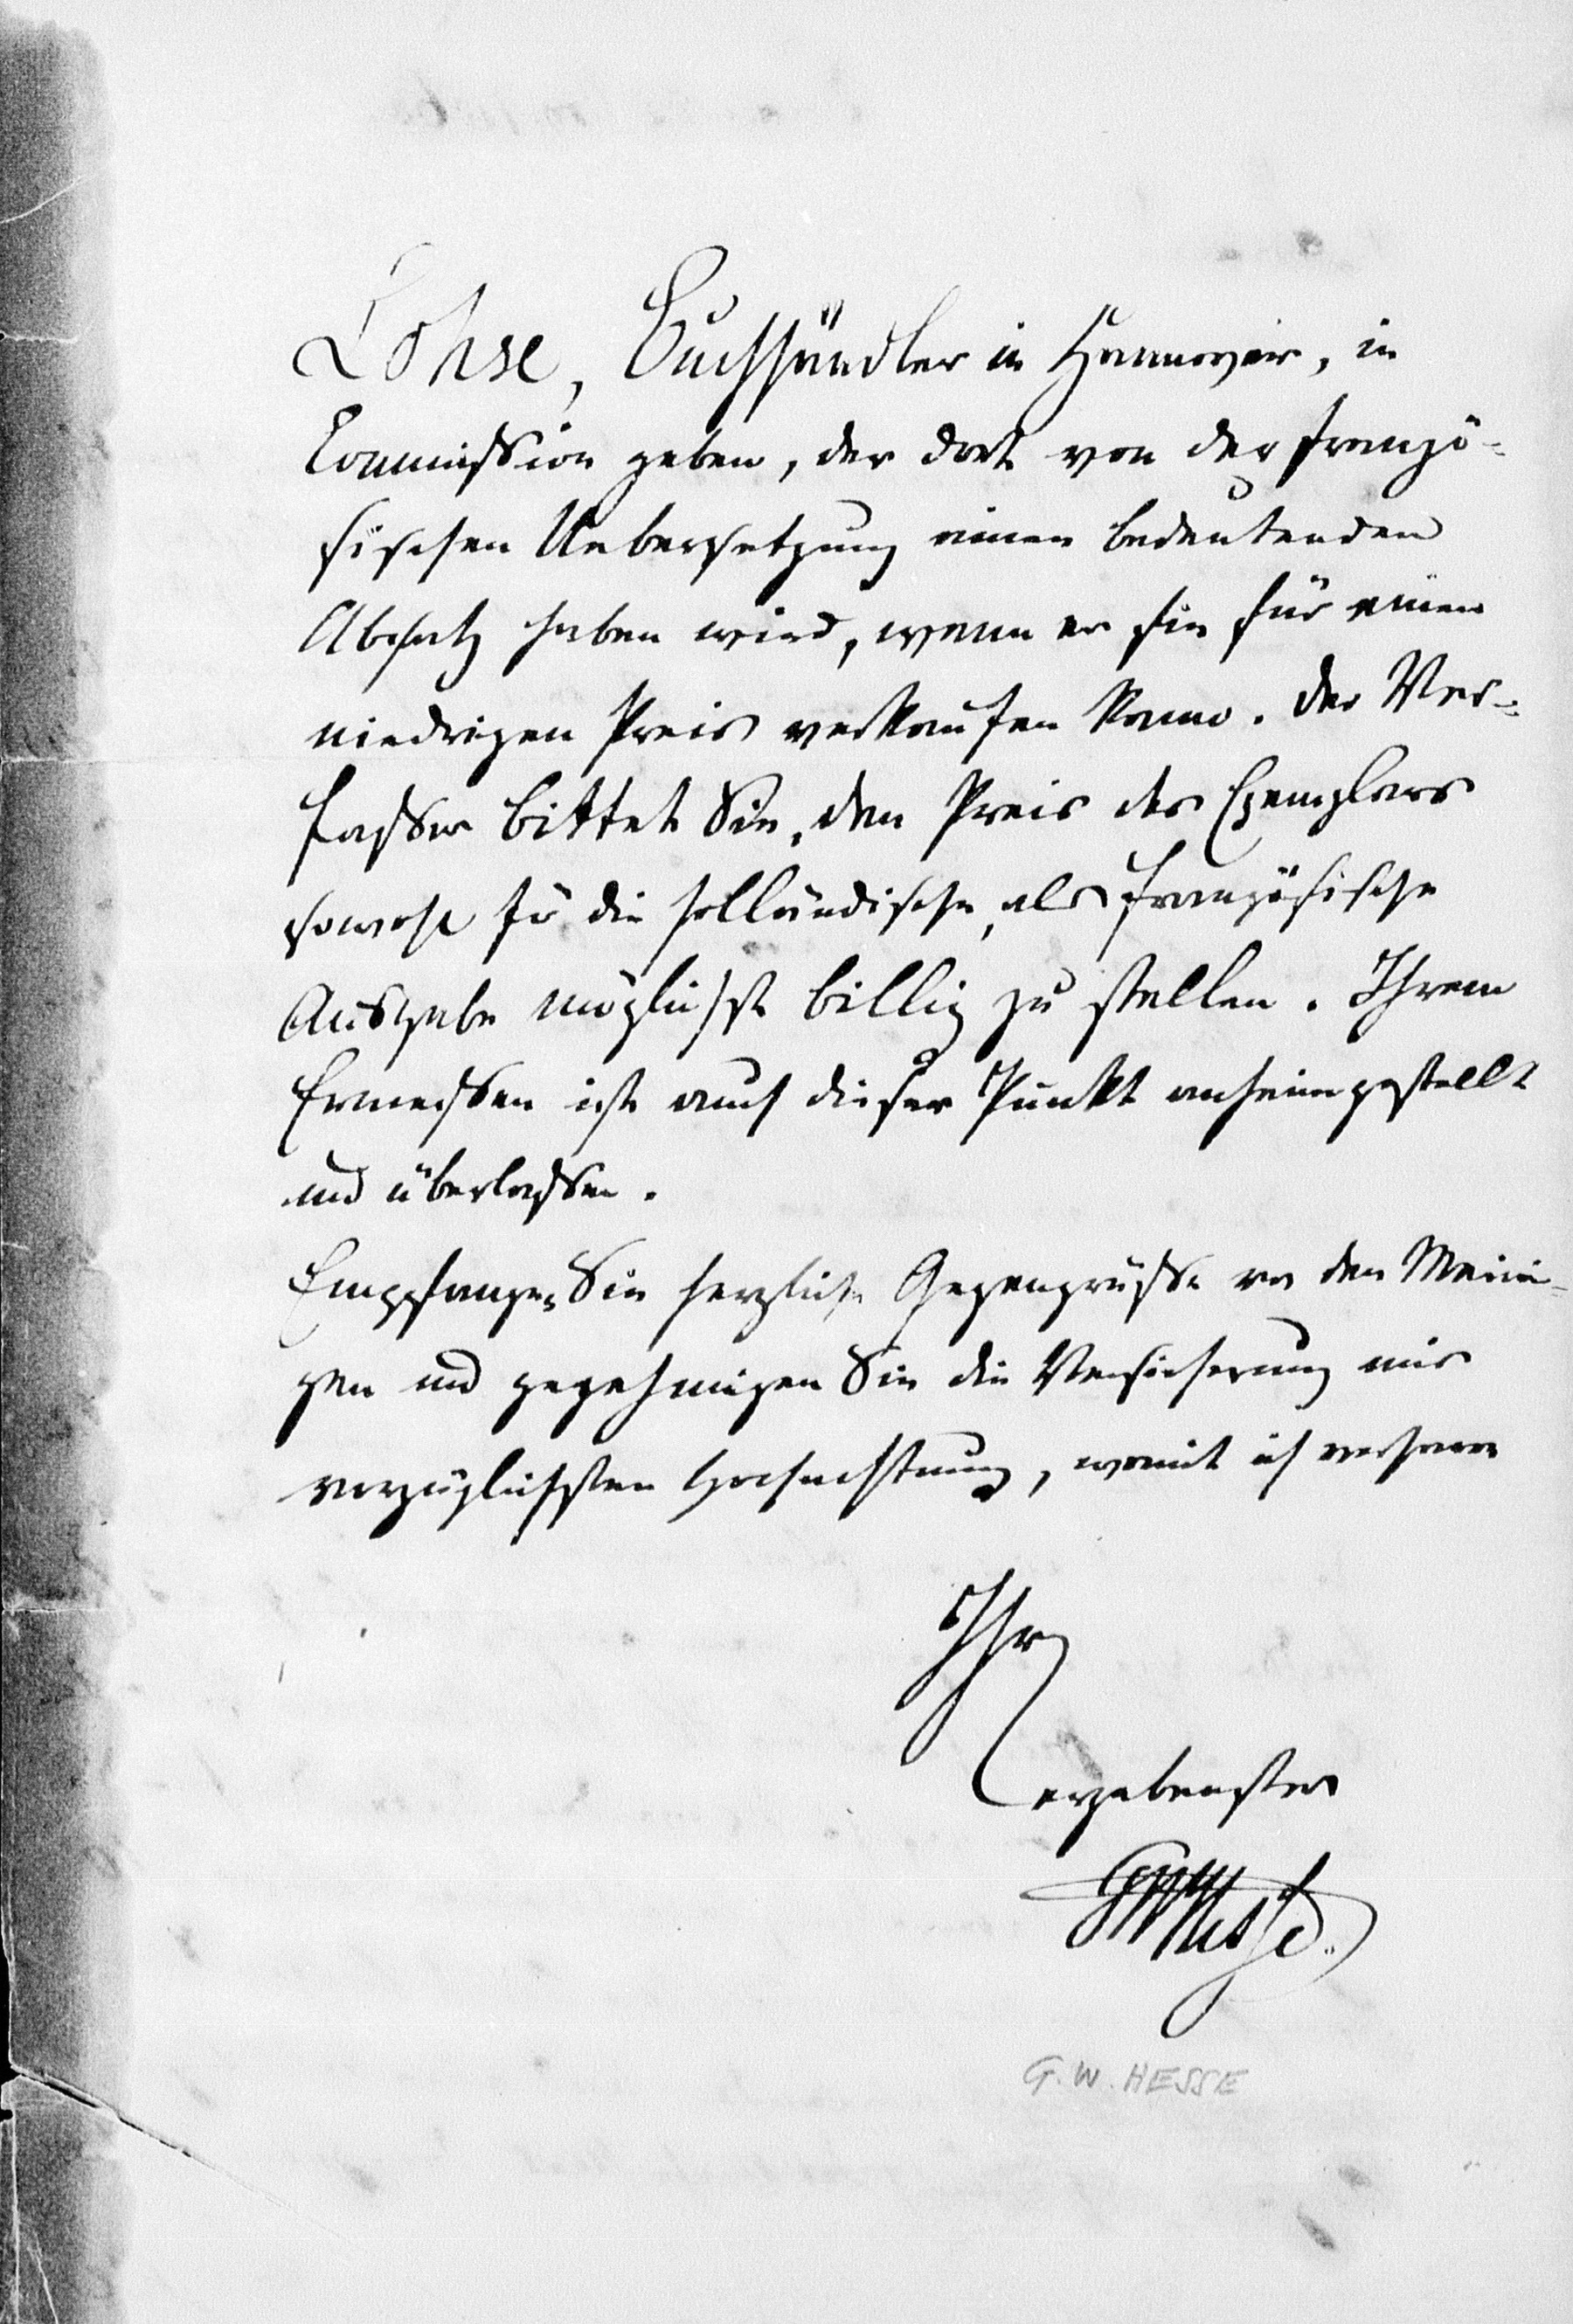 Lohse, Buchhändler in Hannover, in
Commission geben, der dort von der franzö-
sischen Uebersetzung einen bedeutenden
Absatz haben wird, wenn er sie für einen
niedrigen Preis verkaufen kann. Der Ver-
fasser bittet Sie, den Preis des Exemplars
sowohl für die holländische, als französische
Ausgabe möglichst billig zu stellen. Ihrem
Ermessen ist auch dieser Punkt anheimgestellt
und überlassen.
Empfangen Sie herzliche Gegengrüsse von den Meini-
gen und gegehmigen Sie die Versicherung
vorzüglichsten Hochachtung, womit ich verharre
Ihr
ergebenster
GWHesse.
G. W. HESSE